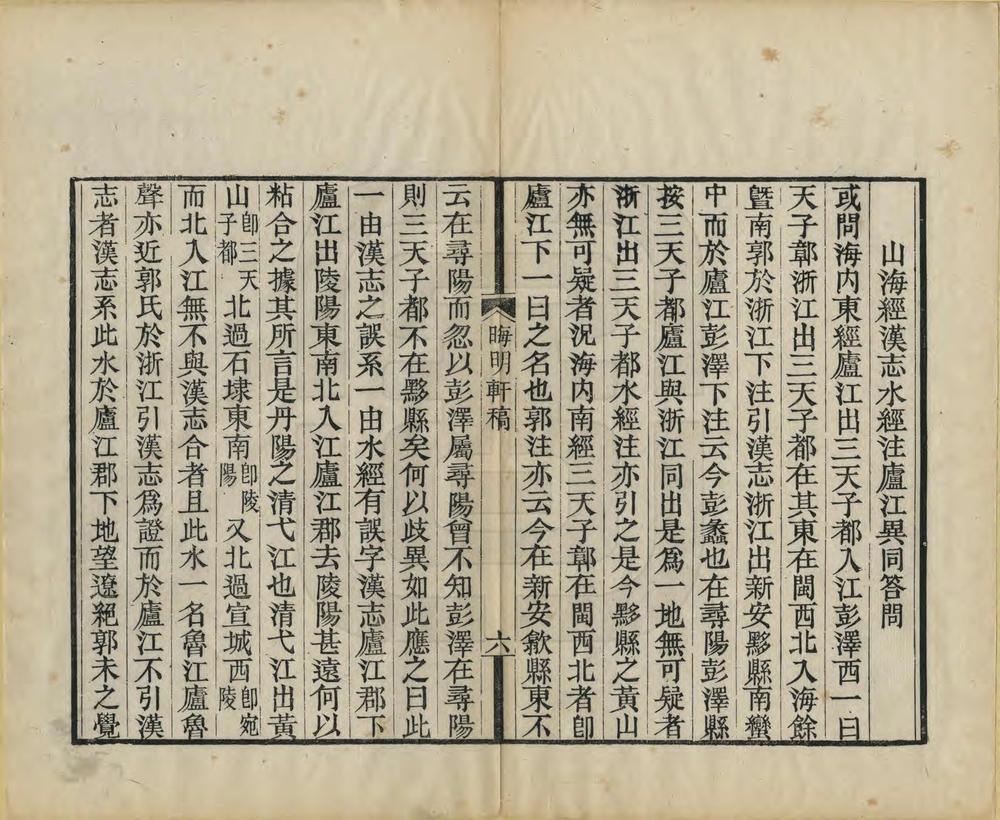 山海經漢志水經注廬江異同答問
或問海内東經廬江出三天子都入江彭澤西一曰
天子鄣浙江出三天子都在其東在閩西北入海餘
暨南郭於浙江下注引漢志浙江出新安黟縣南蠻
中而於廬江彭澤下注云今彭蠡也在尋陽彭澤縣
按三天子都廬江與浙江同出是爲一地無可疑者
浙江出三天子都水經注亦引之是今黟縣之黃山
亦無可疑者況海内南經三天子鄣在閩西北者卽
廬江下一曰之名也郭注亦云今在新安歙縣東不
晦明軒稿 六
云在尋陽而忽以彭澤屬尋陽曾不知彭澤在尋陽
則三天子都不在黟縣矣何以歧異如此應之曰此
一由漢志之誤系一由水經有誤字漢志廬江郡下
廬江出陵陽東南北入江廬江郡去陵陽甚遠何以
粘合之據其所言是丹陽之清弋江也清弋江出黃
山卽三天子都北過石埭東南卽陵陽又北過宣城西卽宛陵
而北入江無不與漢志合者且此水一名魯江廬魯
聲亦近郭氏於浙江引漢志爲證而於廬江不引漢
志者漢志系此水於廬江郡下地望遼絕郭未之覺